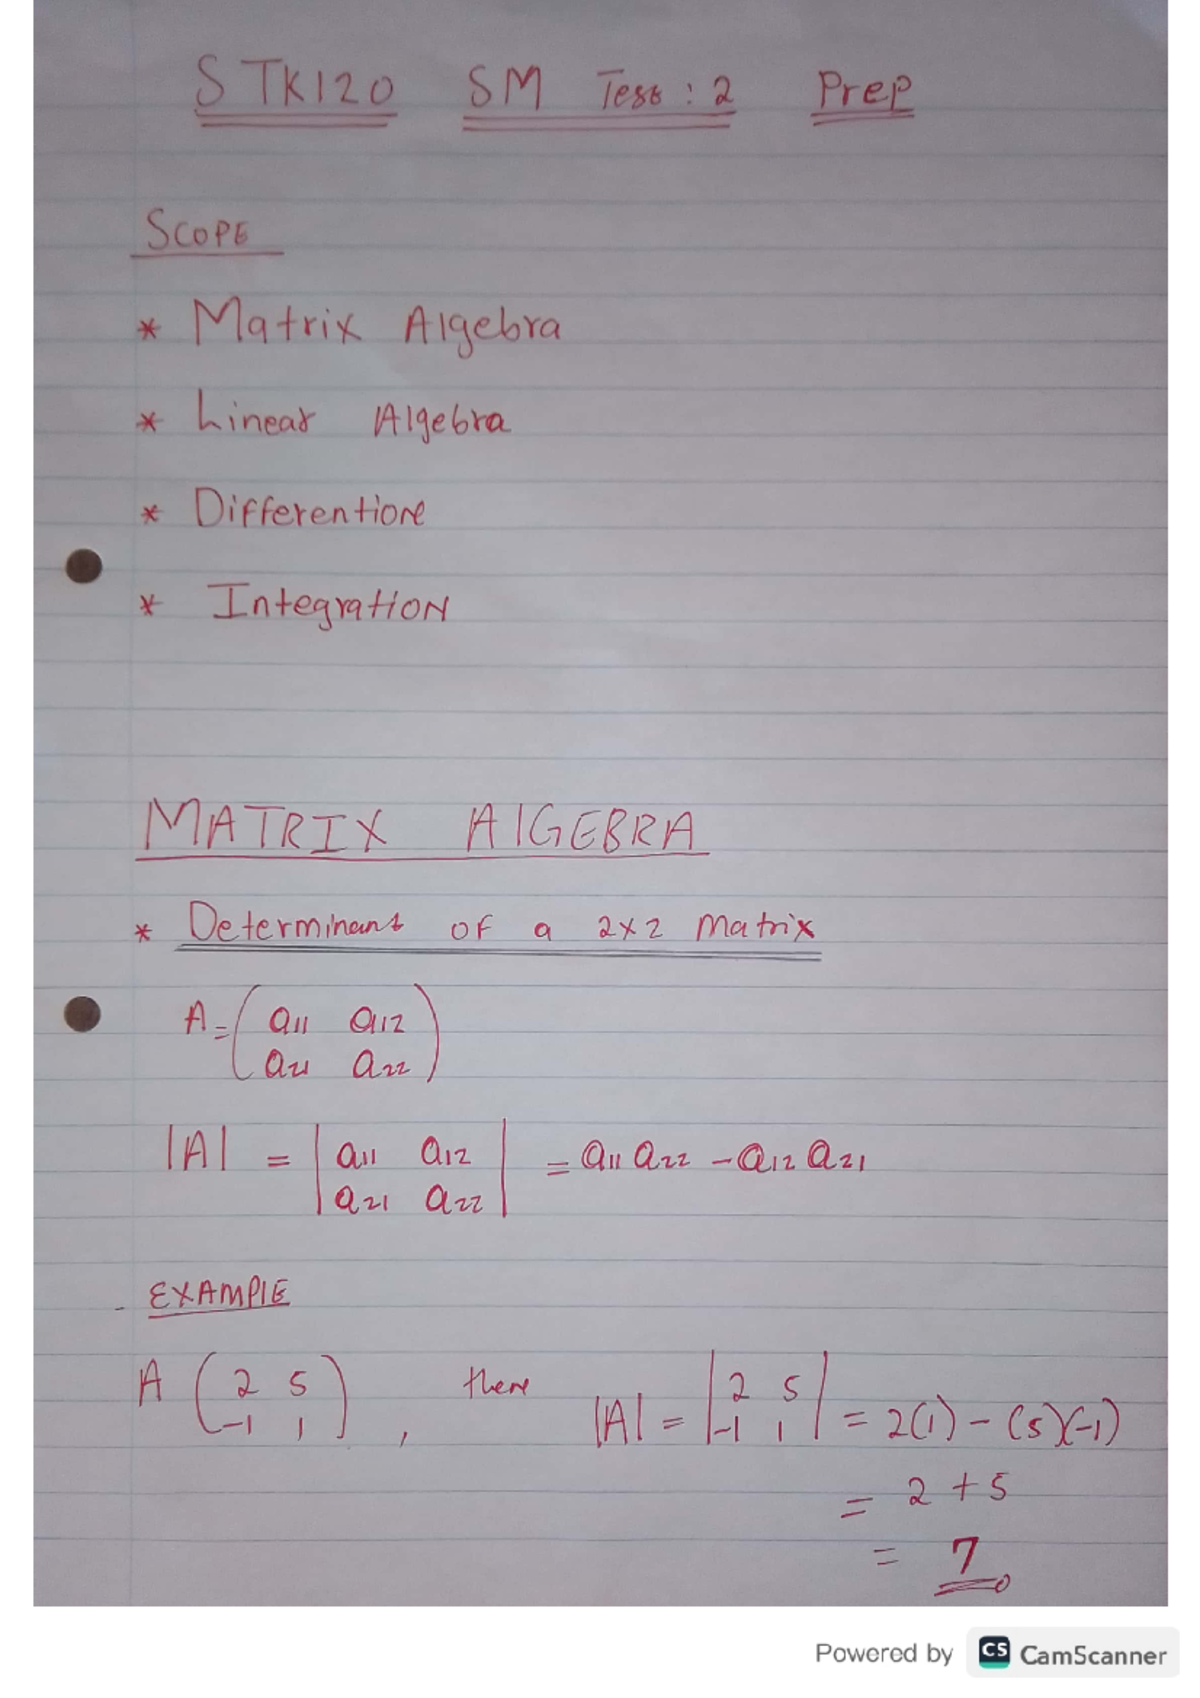 STK120 SM Test : 2 Prep
SCOPE
* Matrix Algebra
* Linear Algebra
* Differentione
* Integration
MATRIX AlGEBRA
* Determinant of a 2x2 Matrix
A = ( a11 a12
a21 a22 )
|A| = | a11 a12 | = a11 a22 - a12 a21
| a21 a22 |
- EXAMPlE
A ( 2 5 ) , there |A| = | 2 5 | = 2(1) - (5)(-1)
( -1 1 ) | -1 1 |
= 2 + 5
= 7
Powered by CS CamScanner